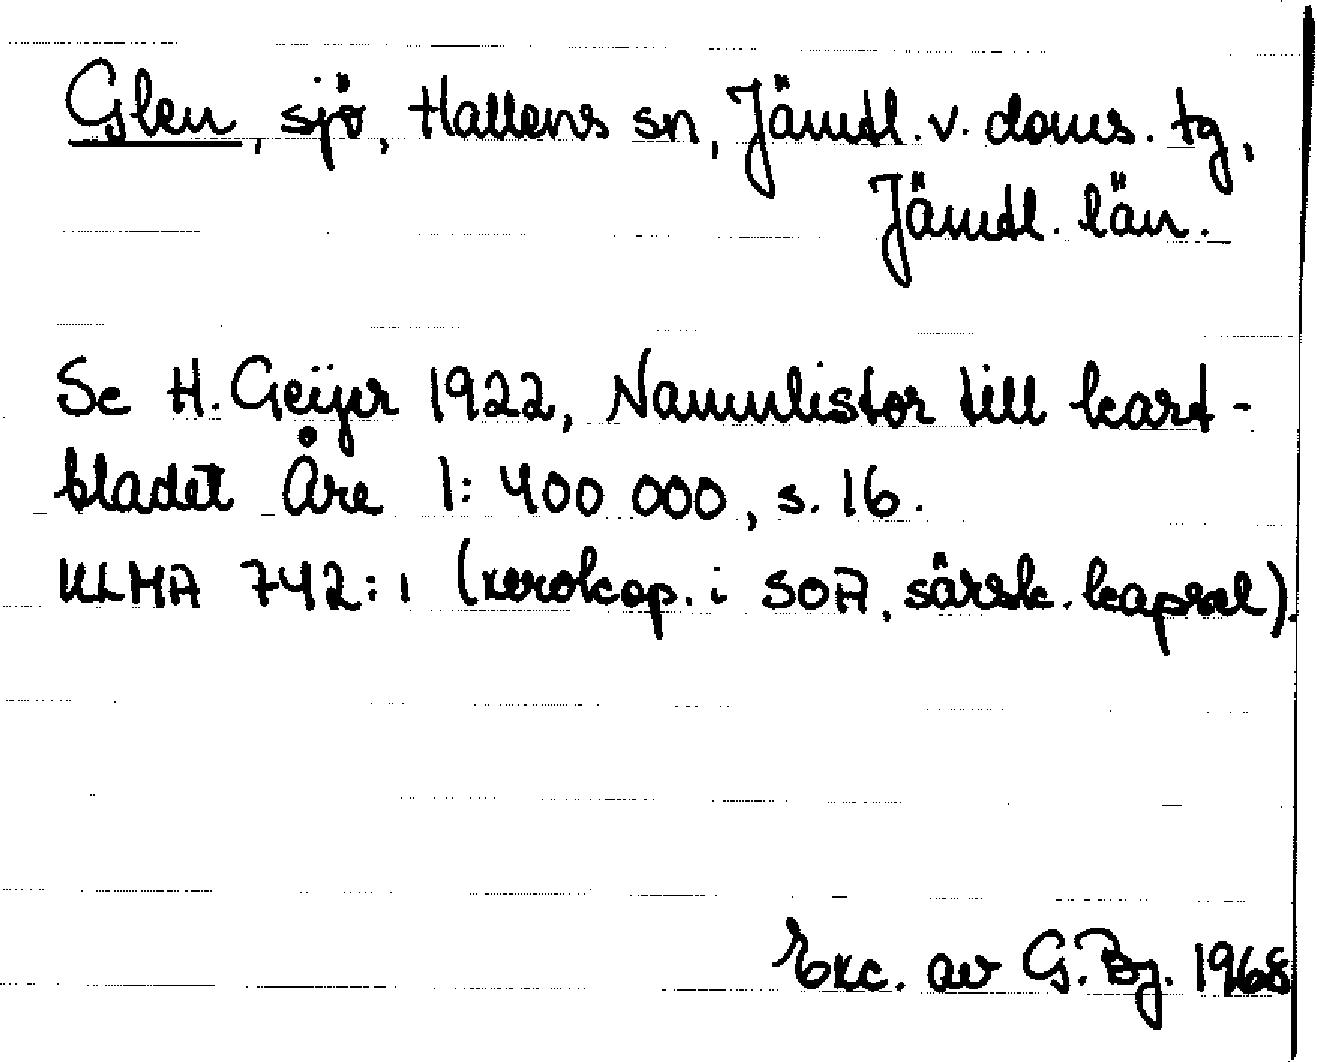 Glen, sjö, Hallens sn, Jämtl. v. doms. tg,
Jämtl. län.
Se H. Geijer 1922, Namnlistor till kart-
bladet Åre 1: 400 000, s. 16.
ULMA 742:1 (xerokop. i SOA, särsk. kapsel).
Exc. av G. Bj. 1968